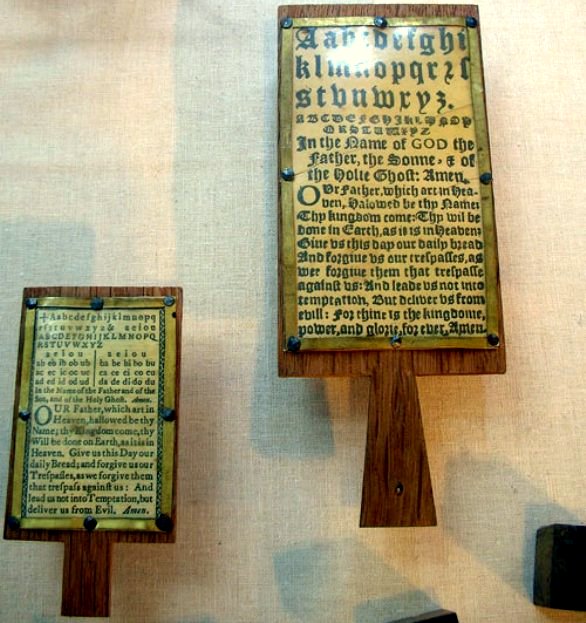 Aabcdefghi
klmnopqrꝛſ
stvnwxyz.
ABCDEFGHIJKLMNOP
QRSTUWXYZ
In the Name of GOD the
Father, the Sonne, & of
the Holie Ghoſt: Amen.
OVr Father, which art in Hea-
ven, Halowed be thy Name:
Thy kingdom come: Thy wil be
done in Earth, as it is in Heaven:
Giue vs this day our daily bread
And forgiue vs our treſpaſſes, as
wee forgiue them that treſpaſſe
againſt vs: And leade vs not into
temptation, But deliuer vs from
evill: For thine is the kingdome,
power, and glorie, for ever, Amen.
+Aabcdefghijklmnopq
rſstuvwxyz& aeiou
ABCDEFGHIJKLMNOPQ
RSTUVWXYZ
a e i o u a e i o u
ab eb ib ob ub ba be bi bo bu
ac ec ic oc uc ca ce ci co cu
ad ed id od ud da de di do du
In the Name of the Father and of the
Son, and of the Holy Ghoſt. Amen.
OUR Father, which art in
Heaven, hallowed be thy
Name; thy Kingdom come, thy
Will be done on Earth, as it is in
Heaven. Give us this Day our
daily Bread; and forgive us our
Treſpaſſes, as we forgive them
that treſpaſs againſt us: And
lead us not into Temptation, but
deliver us from Evil. Amen.